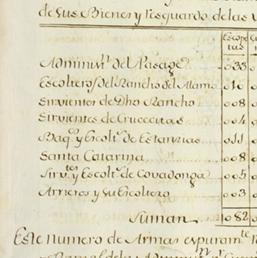 de sus Bienes y resguardo de las
Escope
tas
Administ.r del Passage 033
Escolteros del Rancho del Alamo 010
Sirvientes de Dho Rancho 008
Sirvientes de Crucecitas 004
Baq.s y Escolt.s de Estanzias 011
Santa Catarina 008
Sirv.tes y Escolt.s de Covadonga 005
Arrieros y su Escoltero 003
Suman 082
Este numero de Armas